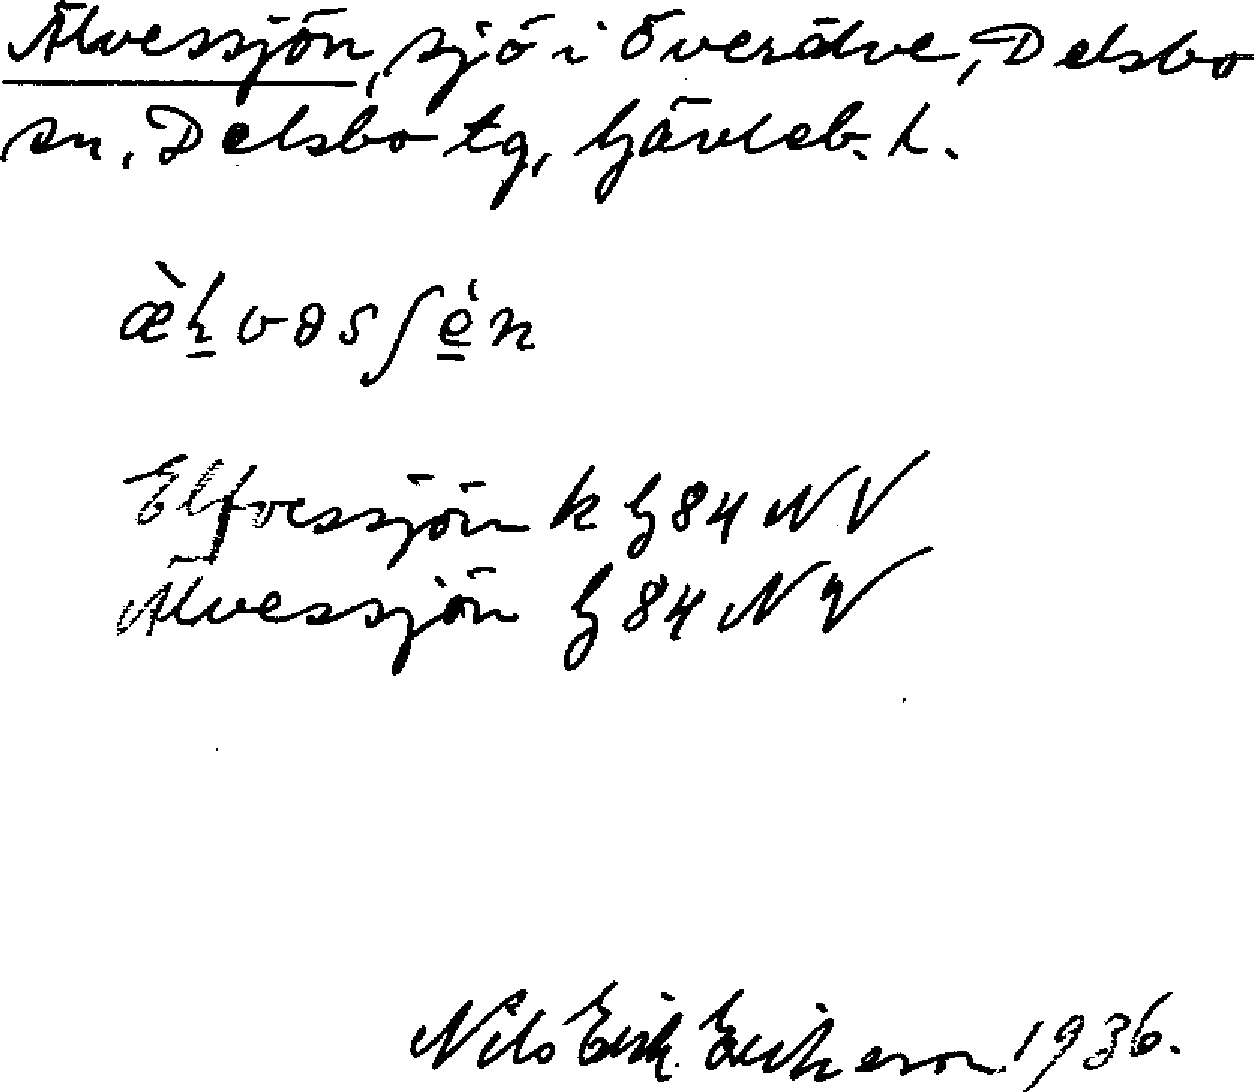 Älvessjön, sjö i Överälve, Delsbo
sn, Delsbo tg, Gävleb. l.
æ̀ł̱vəsʃé̱n
Elfvessjön k G 84 NV
Älvessjön G 84 NV
Nils Erik Erikson 1936.